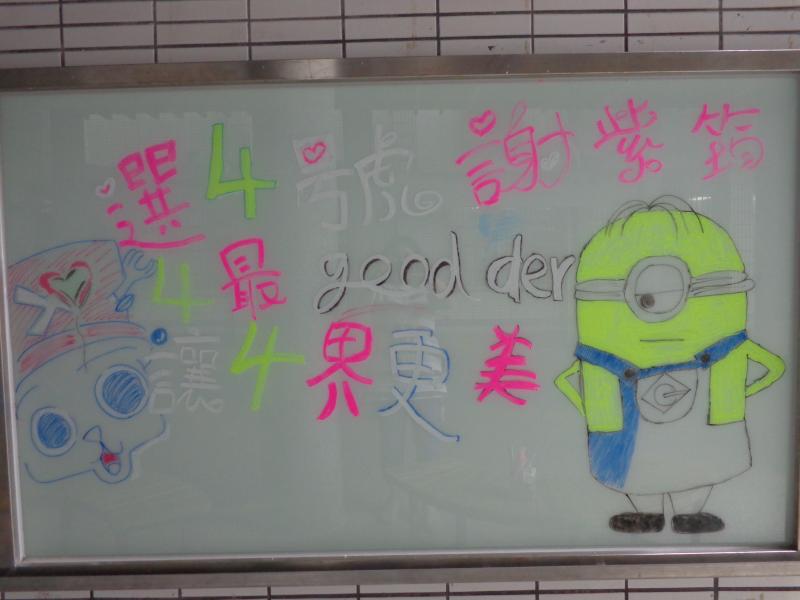 選4號 謝紫筠
4最 good der
讓4界更美